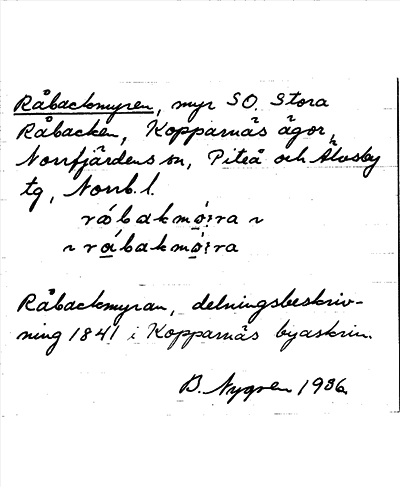 Råbackmyren, myr SO. Stora
Råbacken, Kopparnäs ägor,
Norrfjärdens sn, Piteå och Älvsby
tg, Norrb. l.
råbakmo:ra ~
~ råbakmo:ra
Råbackmyran, delningsbeskriv-
ning 1841 i Kopparnäs byaskrin.
B. Nygren 1936.